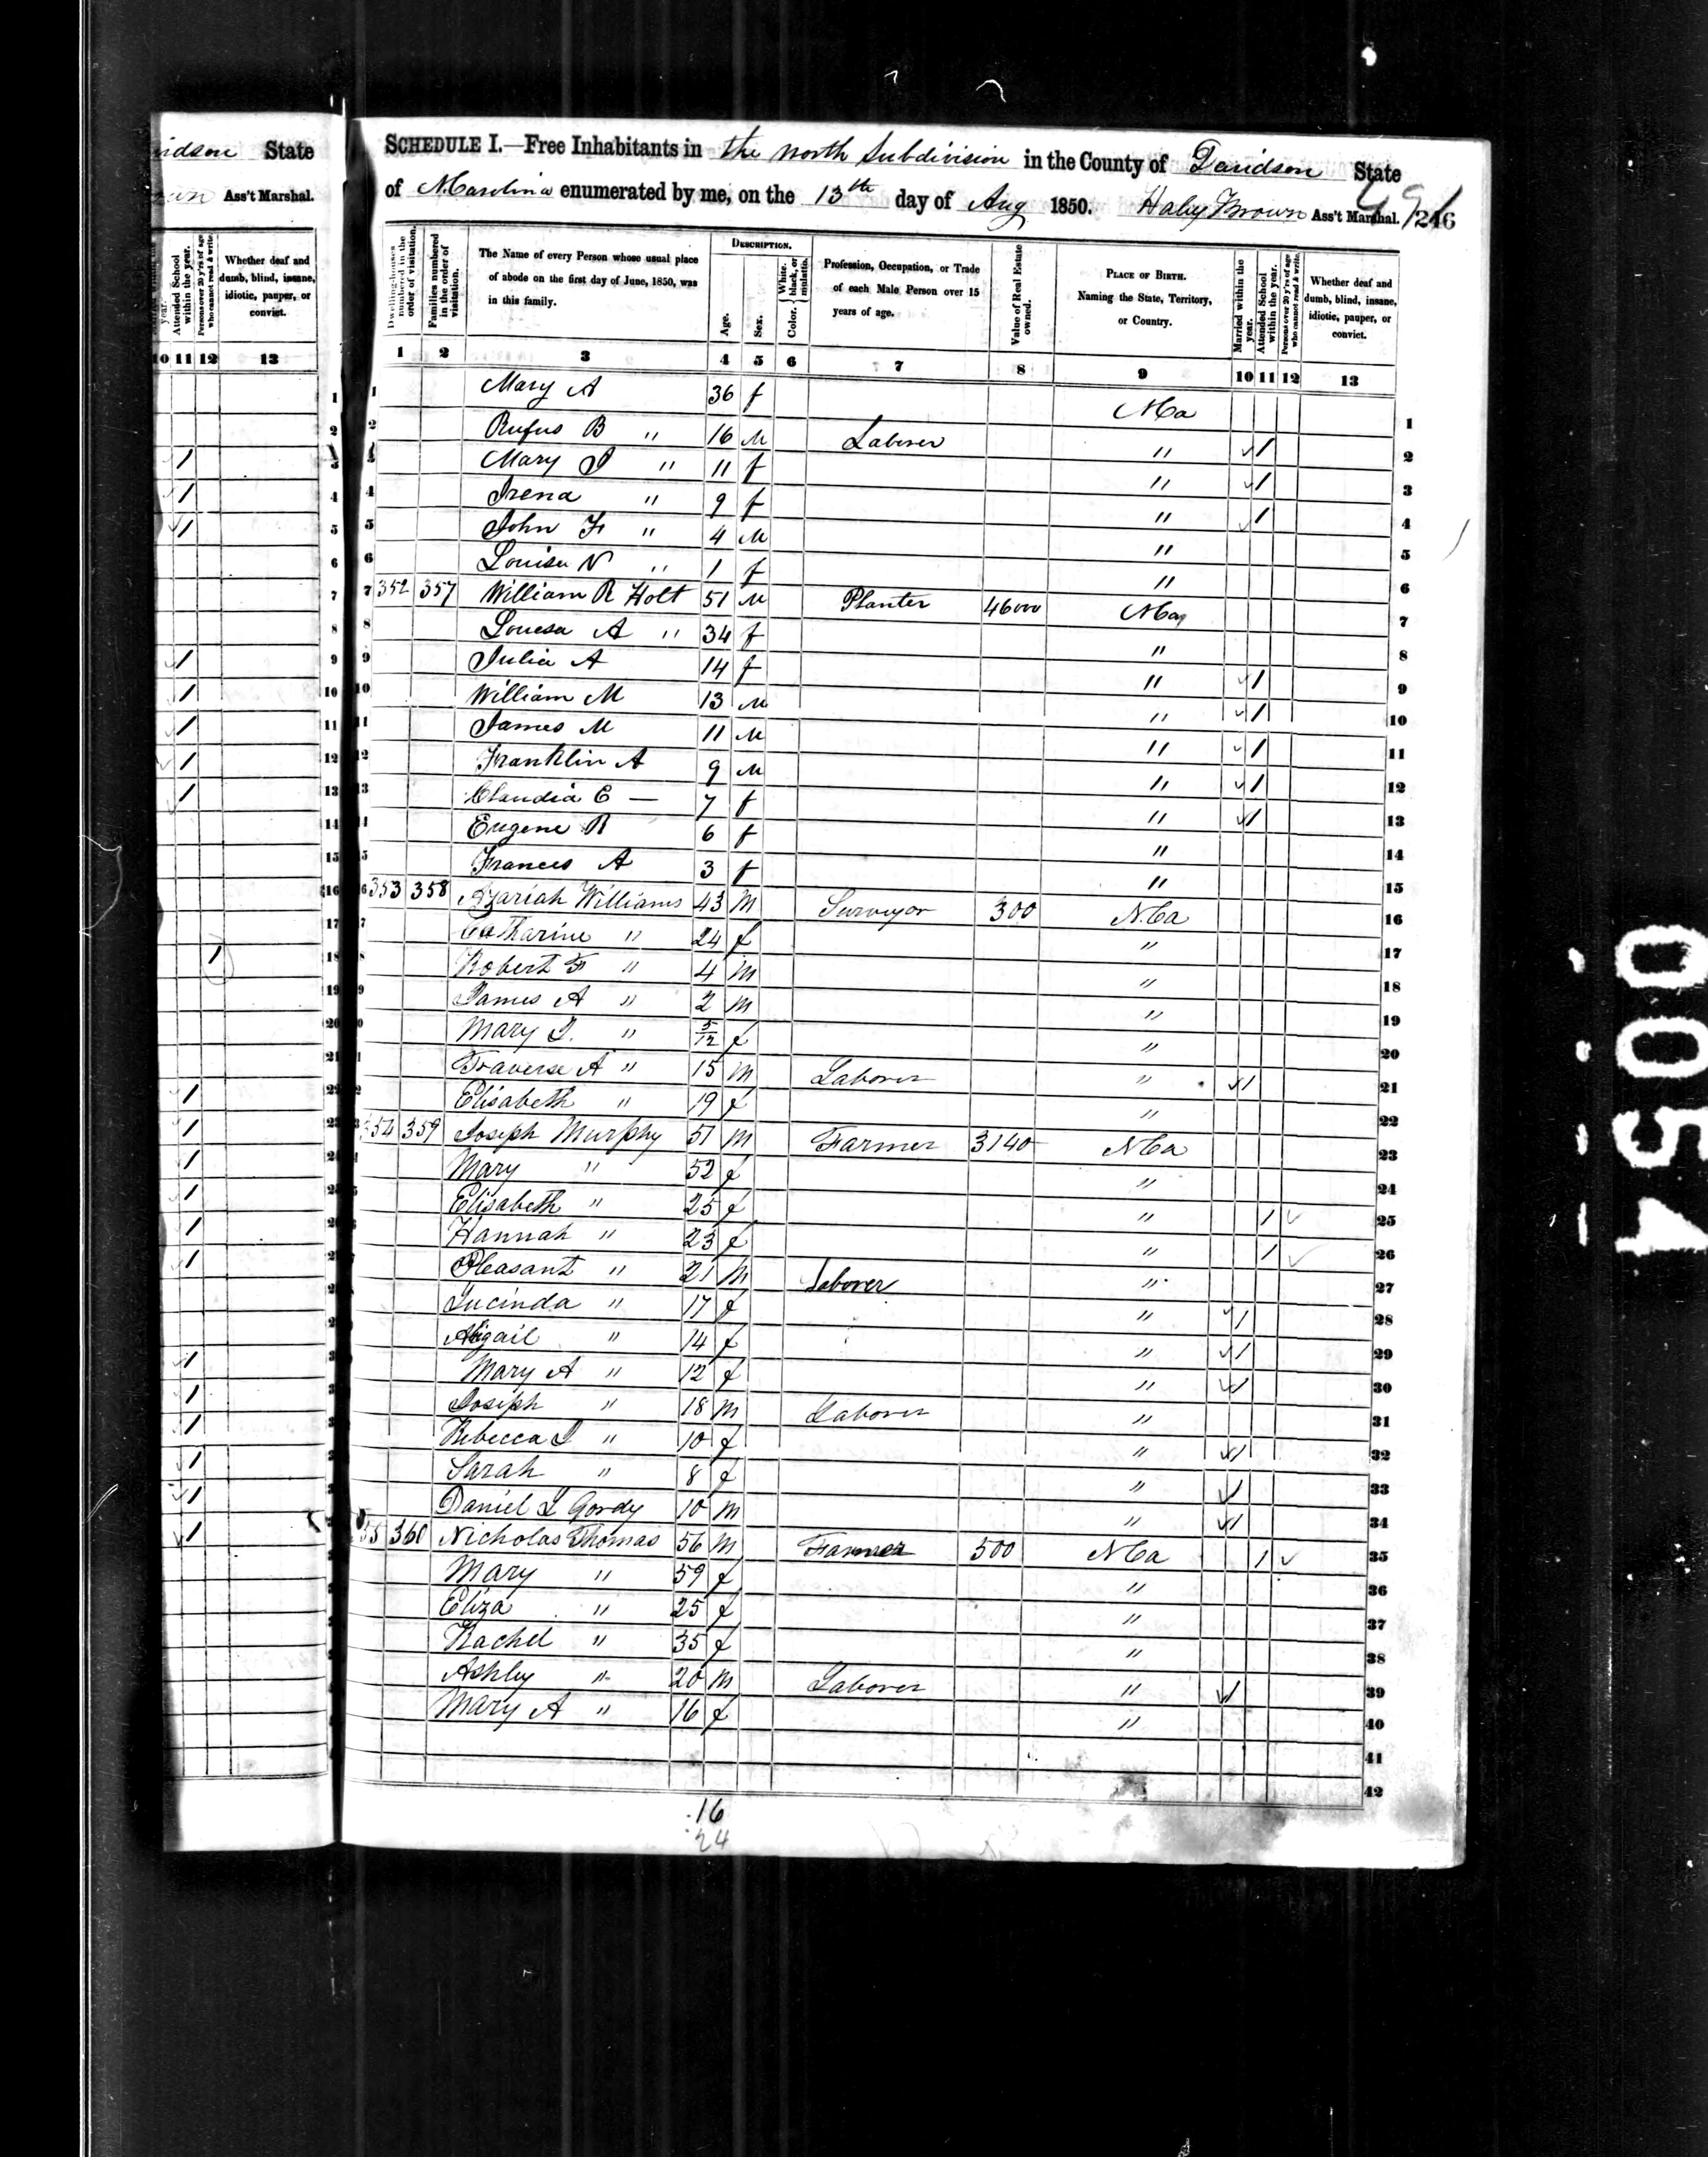 idson State
Ass't Marshal.
SCHEDULE I.—Free Inhabitants in the north Subdivision in the County of Davidson State
of N.Carolina enumerated by me, on the 13th day of Aug 1850. Haley Brown Ass't Marshal. 246
year.
Attended School within the year.
Persons over 20 y'rs of age who cannot read & write.
Whether deaf and dumb, blind, insane, idiotic, pauper, or convict.
10 11 12 13
Dwelling-houses numbered in the order of visitation.
Families numbered in the order of visitation.
The Name of every Person whose usual place of abode on the first day of June, 1850, was in this family.
DESCRIPTION.
Age.
Sex.
Color. { White, black, or mulatto.
Profession, Occupation, or Trade of each Male Person over 15 years of age.
Value of Real Estate owned.
PLACE OF BIRTH. Naming the State, Territory, or Country.
Married within the year.
Attended School within the year.
Persons over 20 y'rs of age who cannot read & write.
Whether deaf and dumb, blind, insane, idiotic, pauper, or convict.
1 2 3 4 5 6 7 8 9 10 11 12 13
1 Mary A 36 f NCa 1
2 Rufus B " 16 M Laborer " 1 2
3 Mary J " 11 f " 1 3
4 Irena " 9 f " 1 4
5 John F " 4 M " 5
6 Louisa N " 1 f " 6
7 352 357 William R Holt 51 M Planter 46000 NCa 7
8 Louesa A " 34 f " 8
9 Julia A 14 f " 1 9
10 William M 13 M " 1 10
11 James M 11 M " 1 11
12 Franklin A 9 M " 1 12
13 Claudia E — 7 f " 1 13
14 Eugene R 6 f " 14
15 Frances A 3 f " 15
16 353 358 Azariah Williams 43 M Surveyor 300 N.Ca 16
17 Catharine " 24 f " 17
18 Robert F " 4 M " 18
19 James A " 2 M " 19
20 Mary J. " 5/12 f " 20
21 Traverse A " 15 M Laborer " 1 21
22 Elisabeth " 19 f " 22
354 359 Joseph Murphy 51 M Farmer 3140 NCa 23
Mary " 52 f " 24
Elisabeth " 25 f " 1 25
Hannah " 23 f " 1 26
Pleasant " 21 M Laborer " 27
Lucinda " 17 f " 1 28
Abigail " 14 f " 1 29
Mary A " 12 f " 1 30
Joseph " 18 M Laborer " 31
Rebecca J " 10 f " 1 32
Sarah " 8 f " 1 33
Daniel L Gordy 10 M " 1 34
55 360 Nicholas Thomas 56 M Farmer 500 NCa 1 35
Mary " 59 f " 36
Eliza " 25 f " 37
Rachel " 35 f " 38
Ashley " 20 M Laborer " 1 39
Mary A " 16 f " 40
41
42
16
24
0054